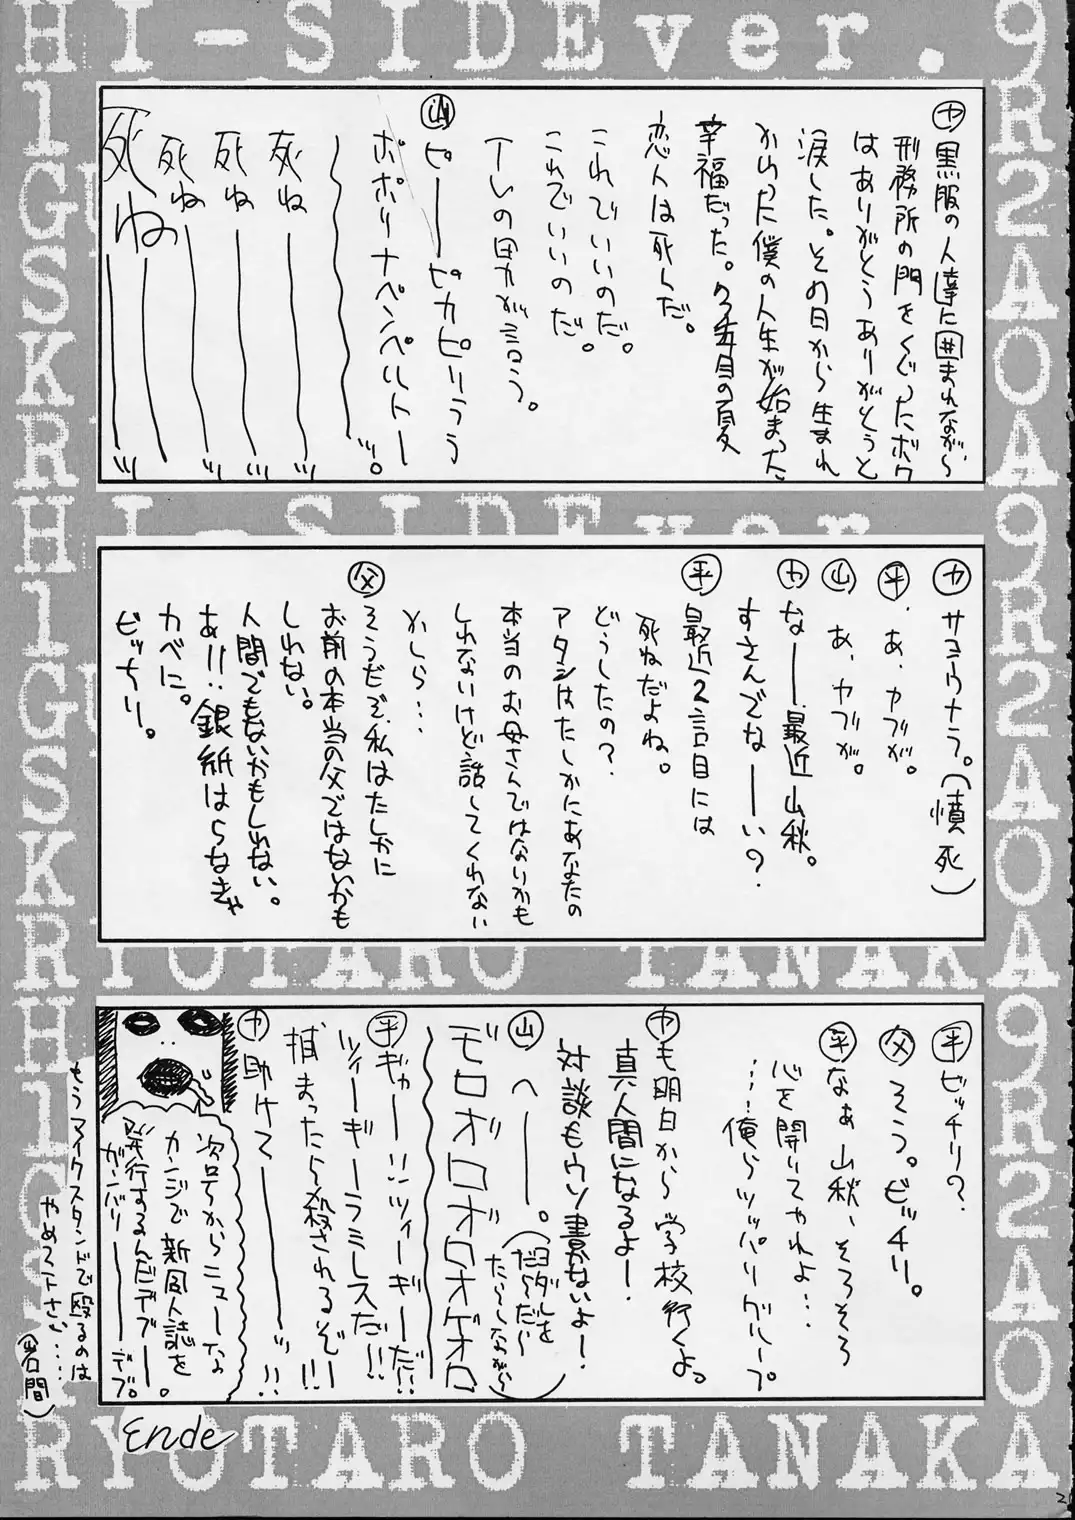 HI-SIDEver.
ヤ 黒服の人達に囲まれながら、
刑務所の門をくぐったボク
はありがとうありがとうと
涙した。その日から生まれ
かわった僕の人生が始まった
幸福だった。
恋人は死んだ。
これでいいのだ。
これでいいのだ。
山 ピーーーピカピリうう
ポポリナペンペルトー
〜〜〜〜ッ。
死ね
死ね
死ね
死ね
HI-SIDEver.
ヤ サヨウナラ。(憤死)
平 あ、ヤブが。
山 あ、ヤブが。
ヤ なーー最近山秋。
すさんでなーーい?
平 最近2言目には
死ねだよね。
どうしたの?
アタシはたしかにあなたの
本当のお母さんではないかも
しれないけど話してくれない
かしら…
父 そうだぞ、私はたしかに
お前の本当の父ではないかも
しれない。
人間でもないかもしれない。
あ!!銀紙はらなきゃ
カベに。
ビッチリ。
RYOTARO TANAKA
平 ビッチリ?
父 そう。ビッチリ。
平 なぁ山秋、そろそろ
心を開いてやれよ…
……俺らツッパリグループ。
ヤ も明日から学校行くよ。
真人間になるよー!
対談もウソ書かないよー!
山 へーーー。(ヨダレを
だら〜だら〜
たら〜しながら)
モロオ゛ロオ゛ロオゲオロ
〜〜〜〜
平 ギャー!!ツィーギーだ!!
ツィーギーラミレスだ!!
捕まったら殺されるぞ!!!
ヤ 助けてーーーッ!!
次号からニューな
カンジで新同人誌を
発行するんだデブー。
ガンバリーーーデブ。
もうマイクスタンドで殴るのは
やめて下さい……
(岩間)
Ende
RYOTARO TANAKA
9R2A0A9R2A0A9R2A0A
2